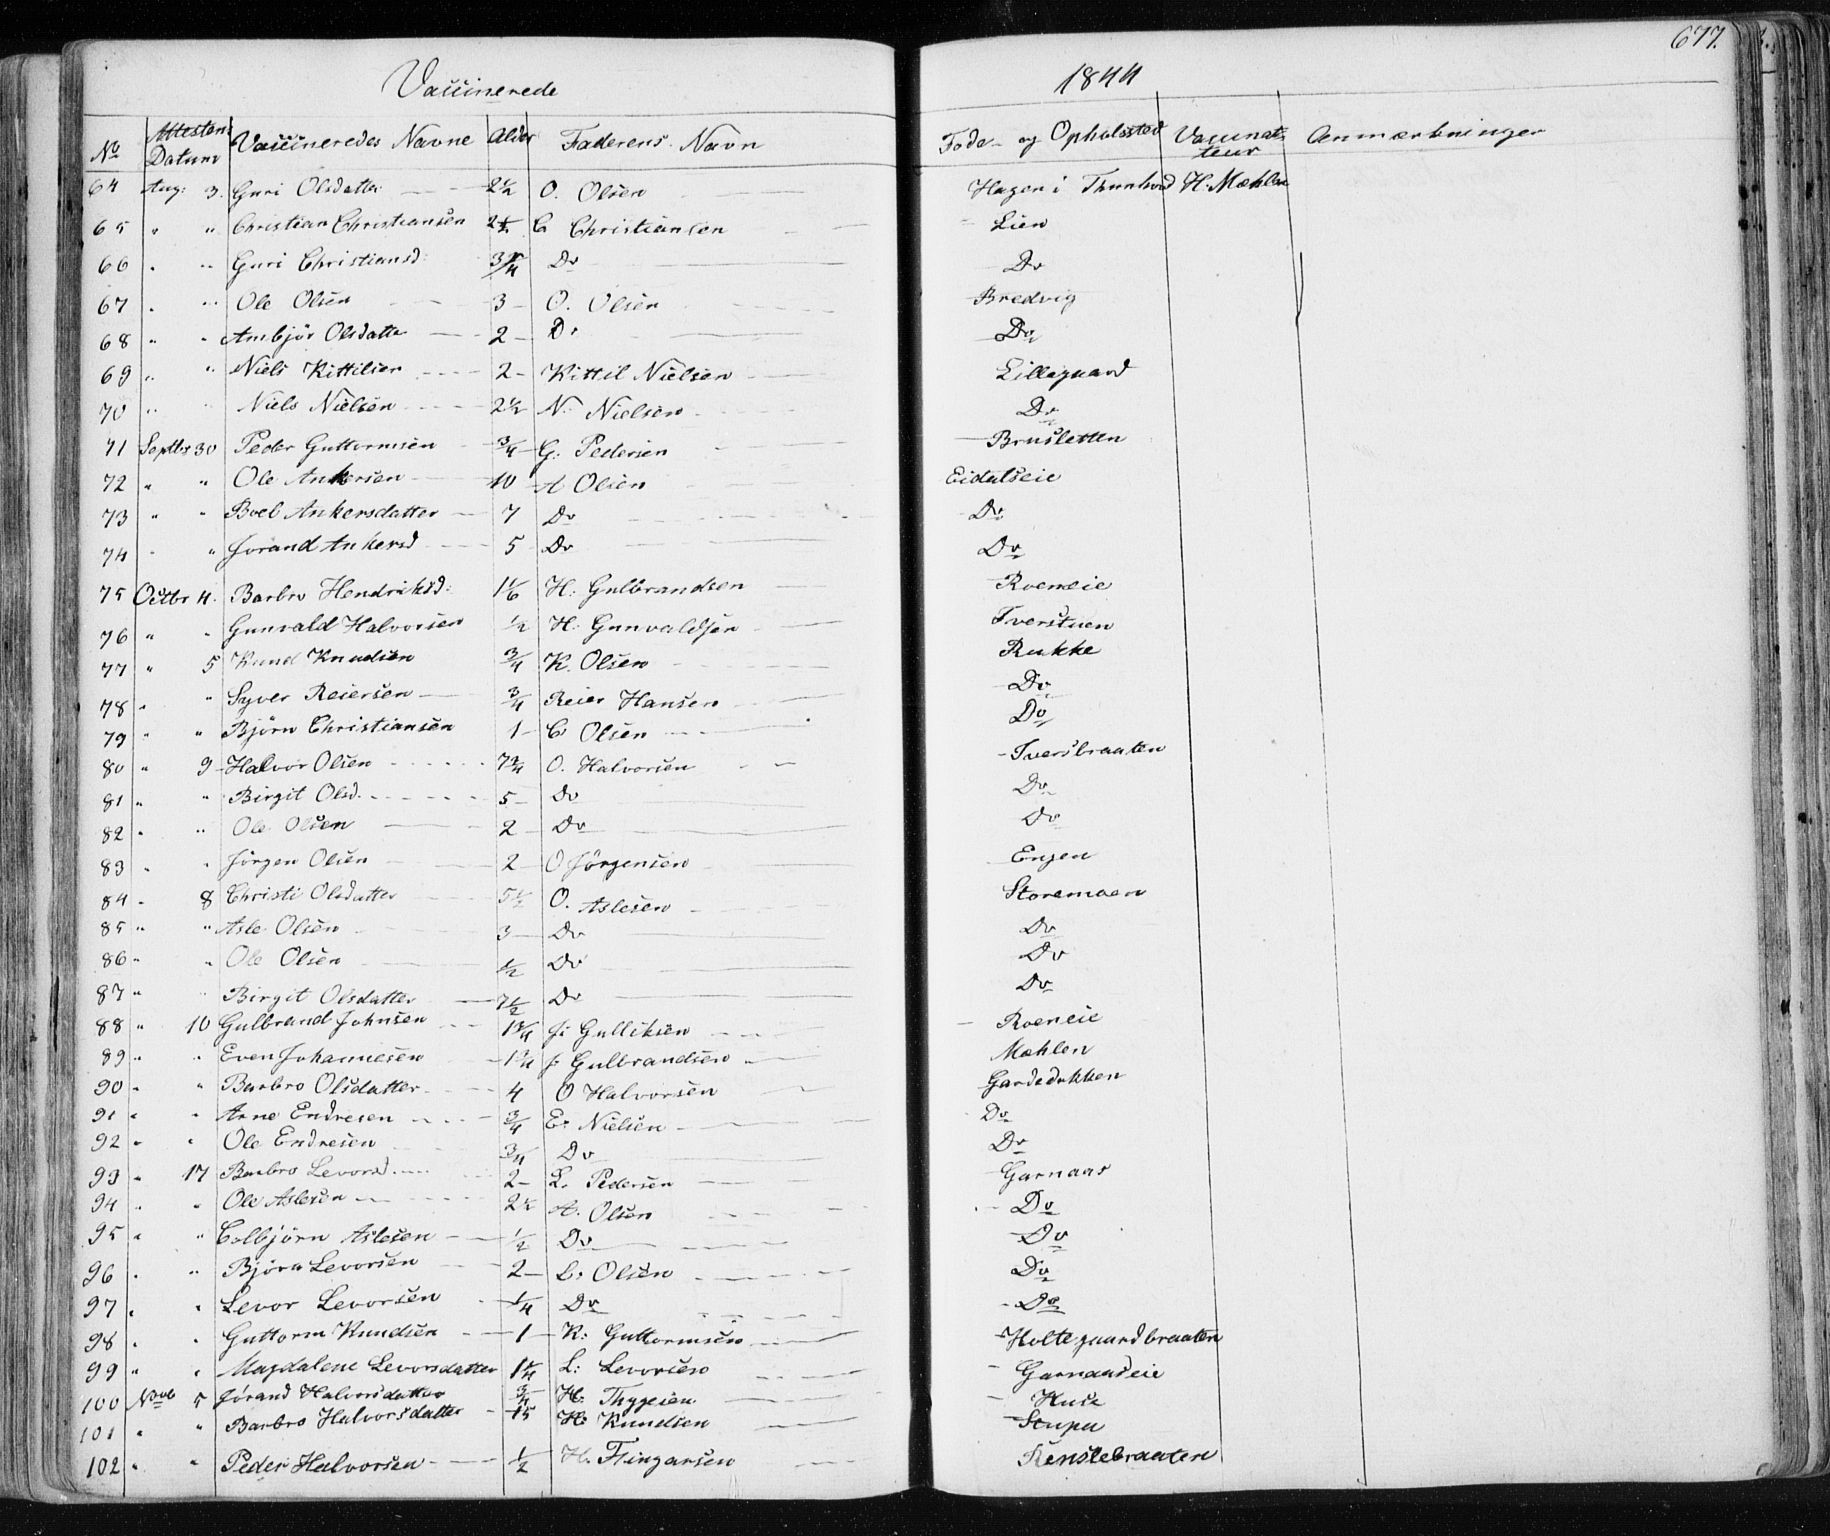 677.
Vaccinerede 1844
No Attestens Datum Vaccineredes Navne Alder Faderens Navn Føde- og Opholssted Vaccinateur Anmærkninger
64 Aug: 3. Guri Olsdatter 2½ O. Olsen Hagen i Thunhovd H. Mæhlen
65 " " Christian Christiansen 2½ C Christiansen Lien
66 " " Guri Christiansd: 3/4 Do Do
67 " " Ole Olsen 3 O. Olsen Bredvig
68 " " Ambjør Olsdatter 2 Do Do
69 " " Niels Kittilsen 2 Kittil Nielsen Lillegaard
70 " " Niels Nielsen 2½ N. Nielsen Do
71 Septbr 30 Peder Guttormsen 3/4 G. Pedersen Brusletten
72 " " Ole Ankersen 10 A Olsen Eidalseie
73 " " Boel Ankersdatter 7 Do Do
74 " " Jorand Ankersd 5 Do Do
75 Octbr 4. Barbro Hendriksd: 1 1/6 H. Gulbrandsen Roeneie
76 " " Gunvald Halvorsen ½ H. Gunvaldsen Tverstuen
77 " 5 Knud Knudsen 3/4 K. Olsen Rukke
78 " " Syver Reiersen 3/4 Reier Hansen Do
79 " " Bjørn Christiansen 1 C Olsen Do
80 " 9 Halvor Olsen 7 3/4 O. Halvorsen Tversbraaten
81 " " Birgit Olsd. 5 Do Do
82 " " Ole Olsen 2 Do Do
83 " " Jørgen Olsen 2 O Jørgensen Engen
84 " 8 Christi Olsdatter 5½ O. Aslesen Storemoen
85 " " Asle Olsen 3 Do Do
86 " " Ole Olsen ½ Do Do
87 " " Birgit Olsdatter 7½ Do Do
88 " 10 Gulbrand Johnsen 1 3/4 J: Gulliksen Roeneie
89 " " Even Johannesen 1 3/4 J: Gulbrandsen Mæhlen
90 " " Barbro Olsdatter 4 O Halvorsen Gardedokken
91 " " Arne Endresen 3/4 E. Nielsen Do
92 " " Ole Endresen 3/4 Do Do
93 " 17 Barbro Levorsd. 2 L. Pedersen Garnaas
94 " " Ole Aslesen 2½ A. Olsen Do
95 " " Colbjørn Aslesen ½ Do Do
96 " " Bjørn Levorsen 2 L. Olsen Do
97 " " Levor Levorsen 1/4 Do Do
98 " " Guttorm Knudsen 1 K: Guttormsen Holtegaardbraaten
99 " " Magdalene Levorsdatter 1 1/4 L: Levorsen Garnaaseie
100 Novb 5 Jørand Halvorsdatter 3/4 H. Thygesen Huse
101 " " Barbro Halvorsdatter 15 H. Knudsen Stupu
102 " " Peder Halvorsen ½ H. Fingarsen